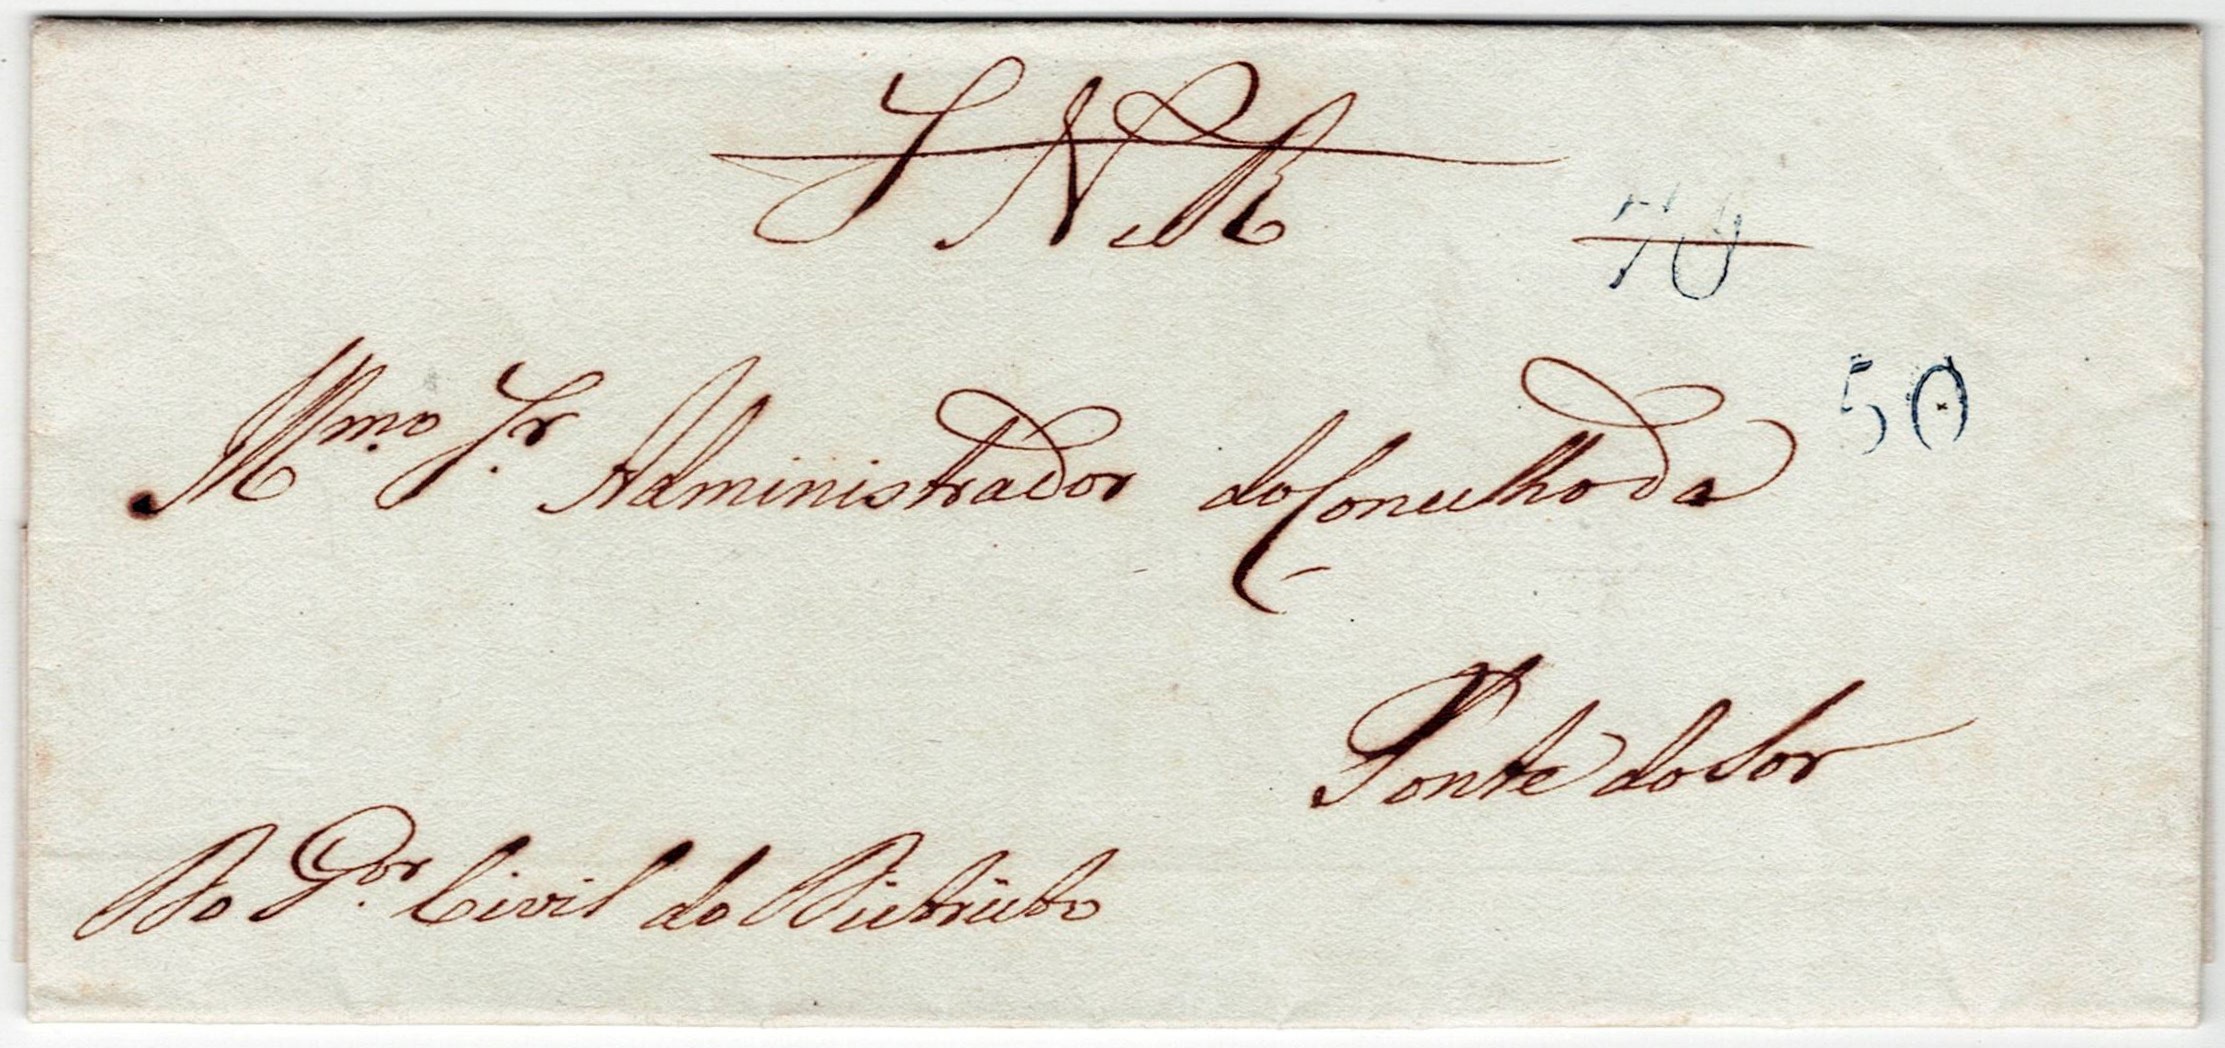 S N R
70
50
Illmo. Sr. Administrador do Concelho da
Ponte do Sor
Do Gor. Civil do Districto